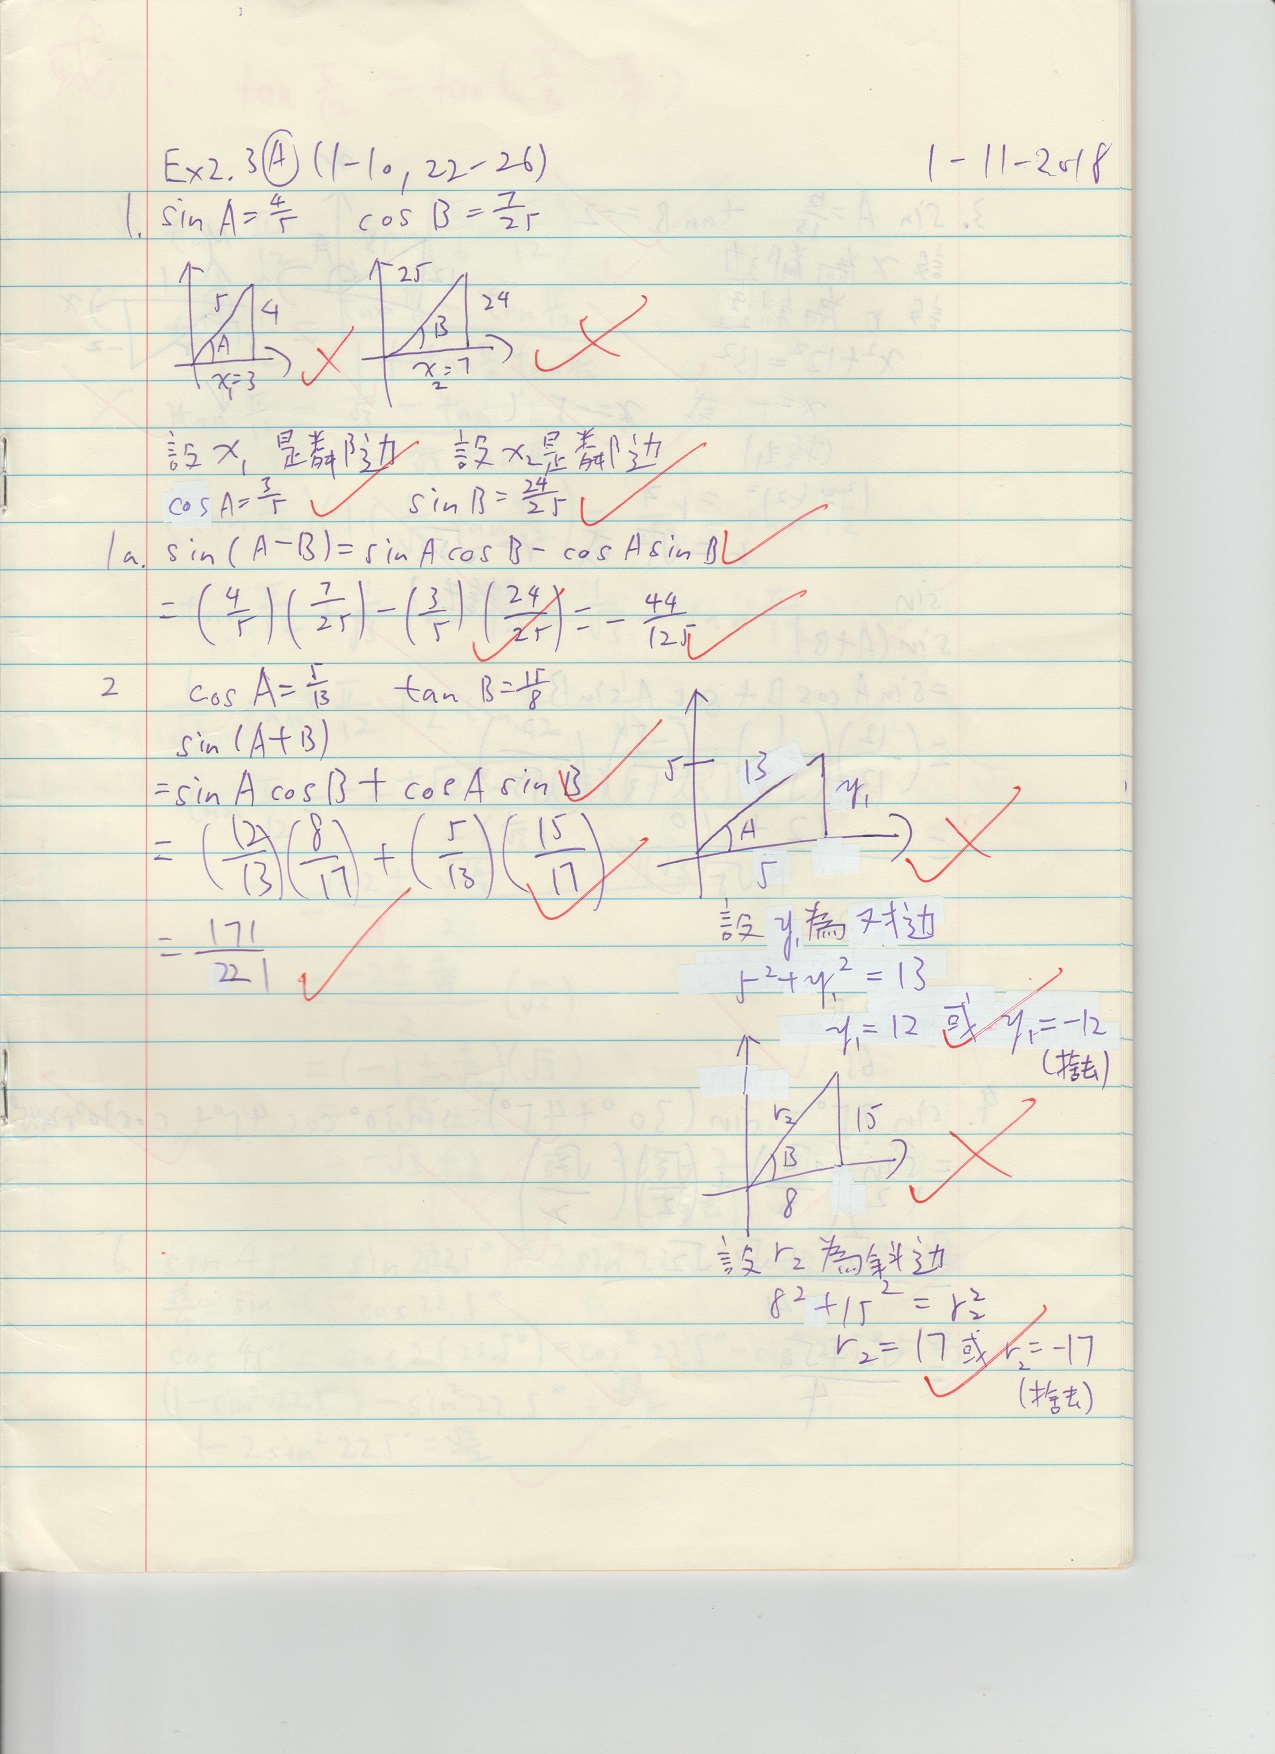 Ex2.3Ⓐ (1-10, 22-26) 1-11-2018
1. sin A = 4/5 cos B = 7/25
5 4 A x₁=3 25 24 B x₂=7
設 x₁ 是鄰边 設 x₂ 是鄰边
cos A = 3/5 sin B = 24/25
1a. sin(A-B) = sin A cos B - cos A sin B
= (4/5)(7/25) - (3/5)(24/25) = - 44/125
2 cos A = 5/13 tan B = 15/8
sin (A+B)
= sin A cos B + cos A sin B
= (12/13)(8/17) + (5/13)(15/17)
= 171/221
5 13 y₁ A 5
設 y₁ 為对边
5² + y₁² = 13
y₁ = 12 或 y₁ = -12
(捨去)
r₂ 15 B 8
設 r₂ 為斜边
8² + 15² = r₂²
r₂ = 17 或 r₂ = -17
(捨去)